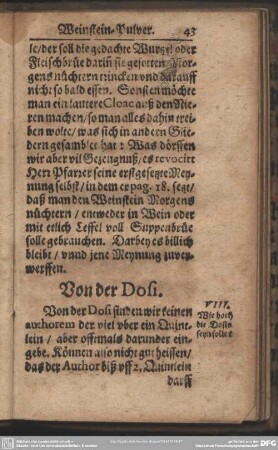 Weinstein-Pulver. 43
le/der soll die gedachte Wurtzel oder
Fleischbrüe darin sie gesotten Mor-
gens nüchtern trincken vnd darauff
nicht so bald essen. Sonsten möchte
man ein lautere Cloac auß den Nie-
ren machen/so man alles dahin trei-
ben wolte/was sich in andern Glie-
dern gesamblet hat: Was dörffen
wir aber vil Gezeugnuß/es revocirt
Herr Pfarrer seine erstgesetzte Mey-
nung selbst/in dem er pag. 18. setzt/
daß man den Weinstein Morgens
nüchtern/entweder in Wein oder
mit etlich Leffel voll Suppenbrüe
solle gebrauchen. Darbey es billich
bleibt/vnnd jene Meynung zuver-
werffen.
Von der Dosi.
Von der Dosi finden wir keinen
authorem der viel vber ein Quint-
lein/aber offtmals darunder ein-
gebe. Können also nicht gut heissen/
das der Author biß vff 2. Quintlein
darff
VIII.
Wie hoch
die Dosis
seyn solle?